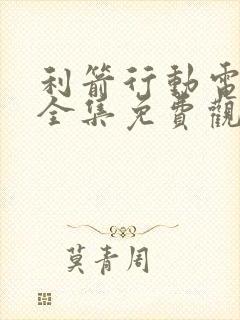 利箭行動電
全集免費觀
莫青周